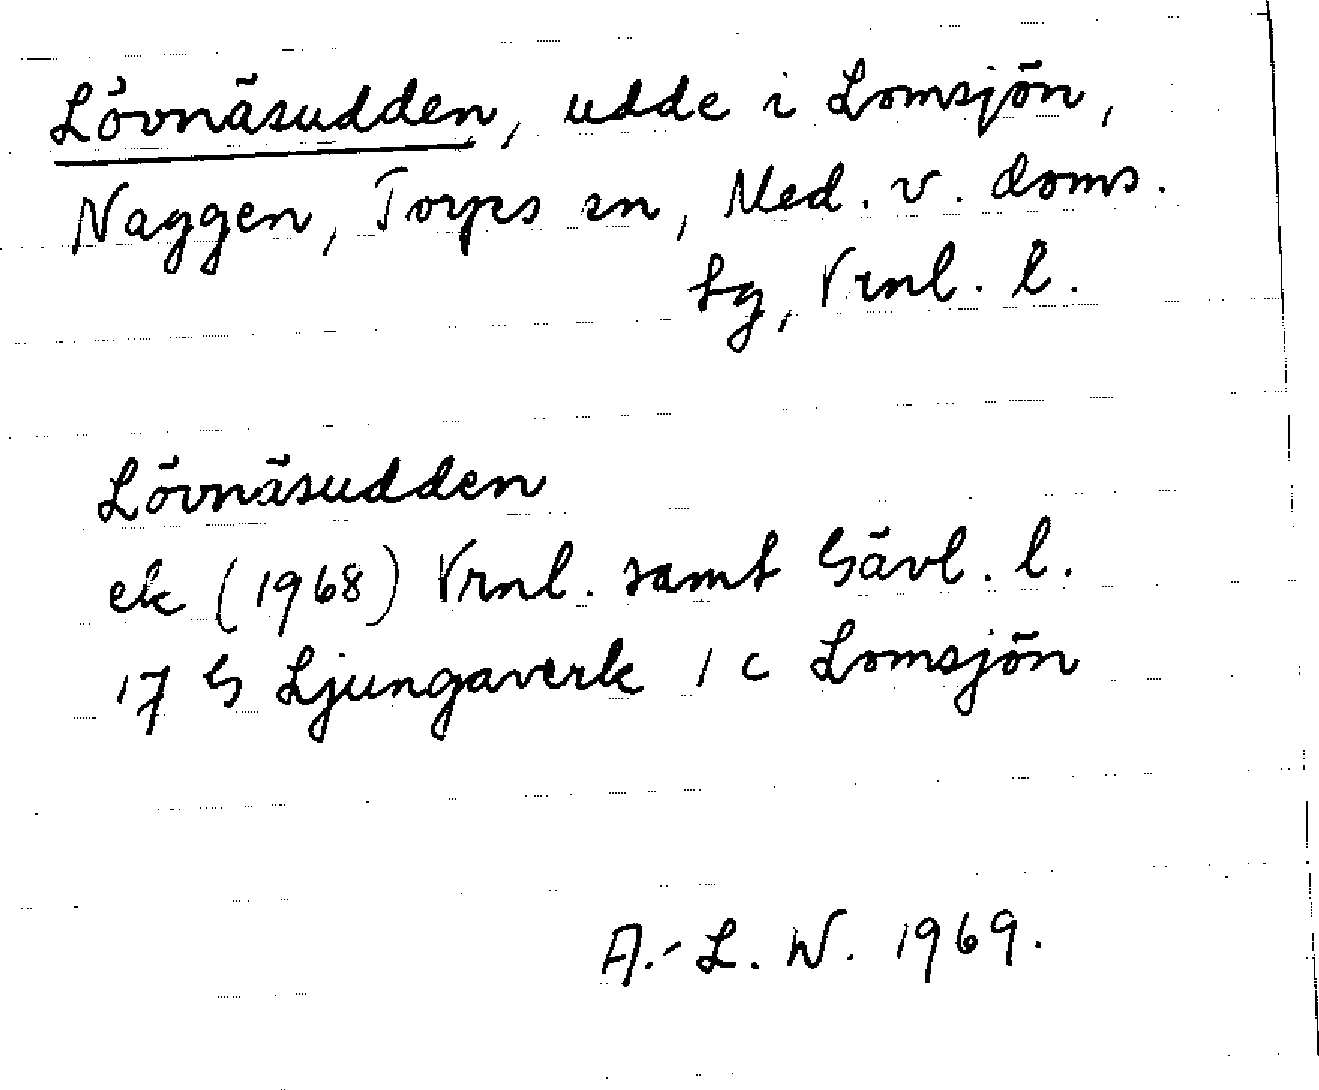 Lövnäsudden, udde i Lomsjön,
Naggen, Torps sn, Med. v. doms.
tg, Vrnl. l.
Lövnäsudden
ek (1968) Vrnl. samt Gävl. l.
17 G Ljungaverk 1 c Lomsjön
A.-L. W. 1969.